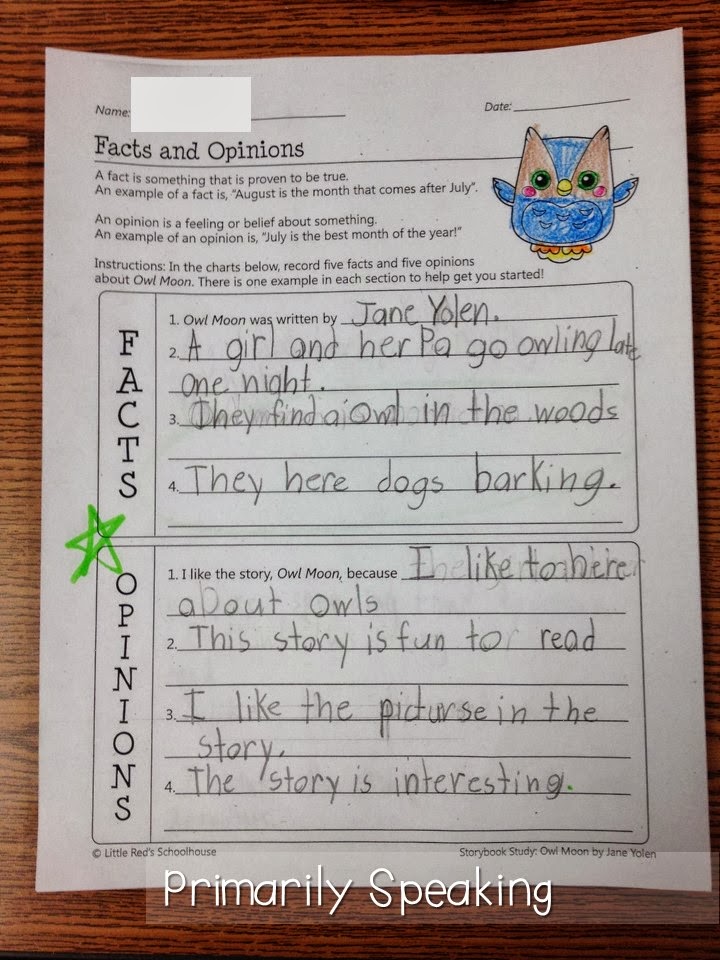 Name:
Date:
Facts and Opinions
A fact is something that is proven to be true.
An example of a fact is, "August is the month that comes after July".
An opinion is a feeling or belief about something.
An example of an opinion is, "July is the best month of the year!"
Instructions: In the charts below, record five facts and five opinions
about Owl Moon. There is one example in each section to help get you started!
FACTS
1. Owl Moon was written by Jane Yolen.
2. A girl and her Pa go owling late
one night.
3. They find a owl in the woods
4. They here dogs barking.
OPINIONS
1. I like the story, Owl Moon, because I like to here
about owls
2. This story is fun to read
3. I like the picturse in the
story.
4. The story is interesting.
© Little Red's Schoolhouse
Storybook Study: Owl Moon by Jane Yolen
Primarily Speaking